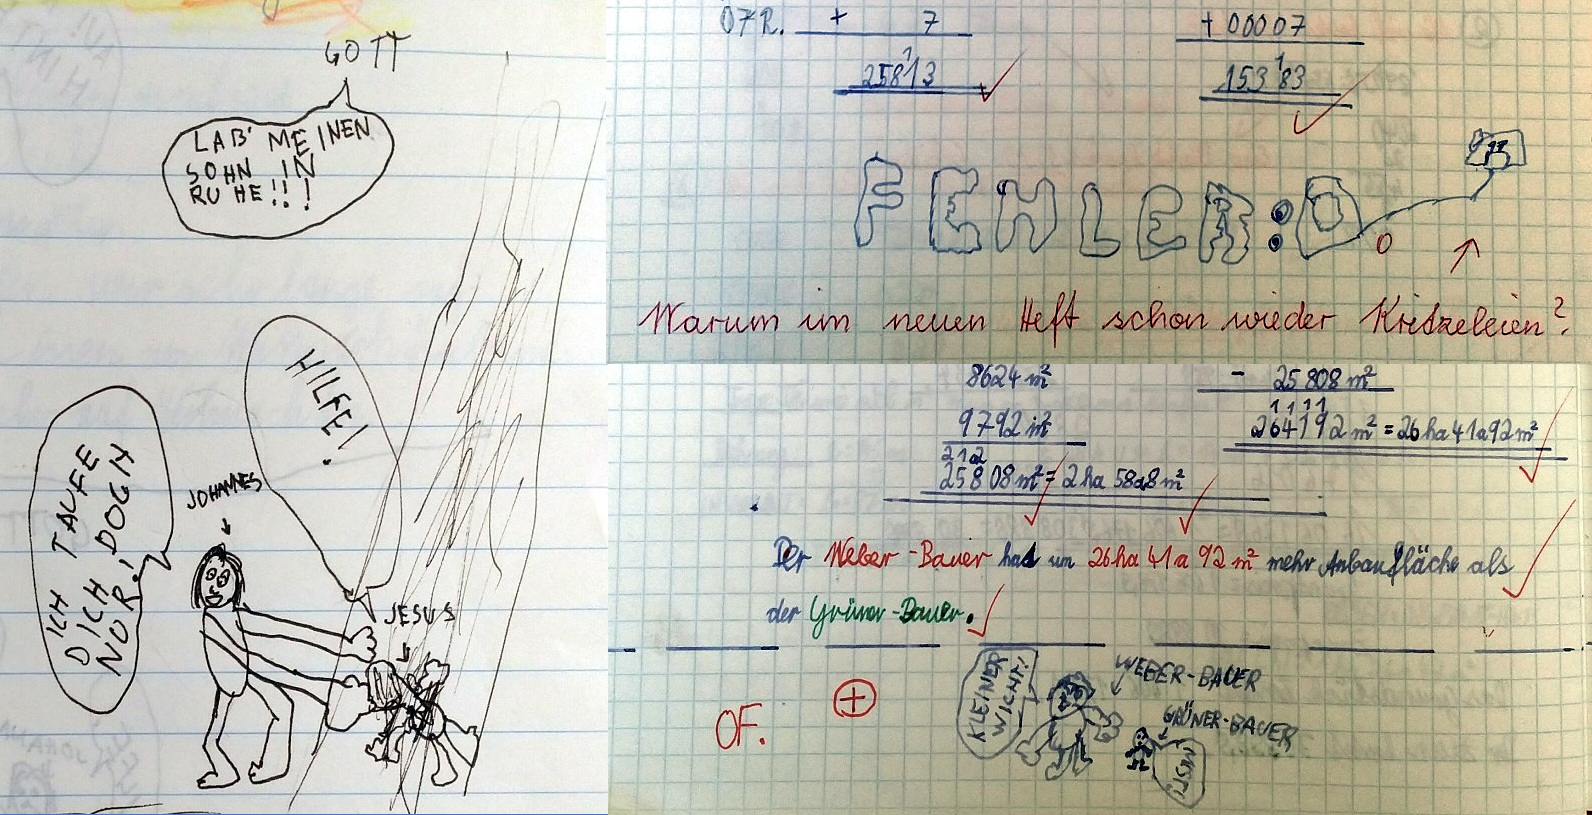 GOTT
LAß' MEINEN
SOHN IN
RUHE!!!
HILFE!
ICH TAUFE
DICH DOCH
NUR!
JOHANNES
JESUS
07R. + 7
25813
+ 00007
153183
FEHLER: 0
Warum im neuen Heft schon wieder Kritzeleien?
8624 m²
9792 m²
212
25808 m² = 2 ha 58a8 m²
- 25808 m²
1111
264192 m² = 26 ha 41a92 m²
Der Weber-Bauer hat um 26 ha 41 a 92 m² mehr Anbaufläche als
der Grüner-Bauer.
OF. +
KLEINER
WICHT!
WEBER-BAUER
GRÜNER-BAUER
MIST!